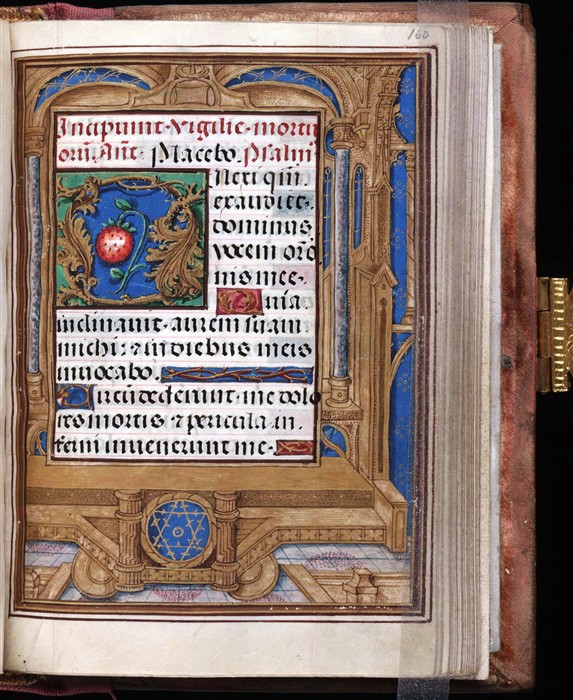 160
Incipiunt · vigilie · mortu
orū. Ant. Placebo. Psalm
Dilexi qm̄.
exaudiet.
dominus
vocem orō
nis mee.
Quia
inclinavit · aurem suam
michi: ⁊ in diebus meis
invocabo.
Circūdederunt · me dolo
res mortis ⁊ pericula · in
ferni invenerunt me·